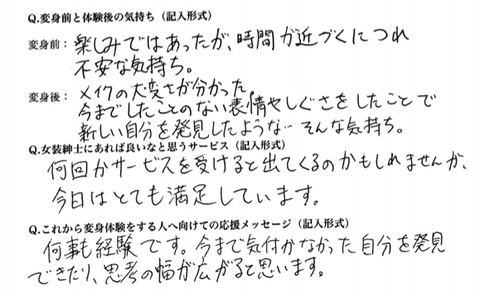 Q.変身前と体験後の気持ち（記入形式）
変身前：楽しみではあったが、時間が近づくにつれ
不安な気持ち。
変身後：メイクの大変さが分かった。
今までしたことのない表情やしぐさをしたことで
新しい自分を発見したような…そんな気持ち。
Q.女装紳士にあれば良いなと思うサービス（記入形式）
何回かサービスを受けると出てくるのかもしれませんが、
今日はとても満足しています。
Q.これから変身体験をする人へ向けての応援メッセージ（記入形式）
何事も経験です。今まで気付かなかった自分を発見
できたり、思考の幅が広がると思います。